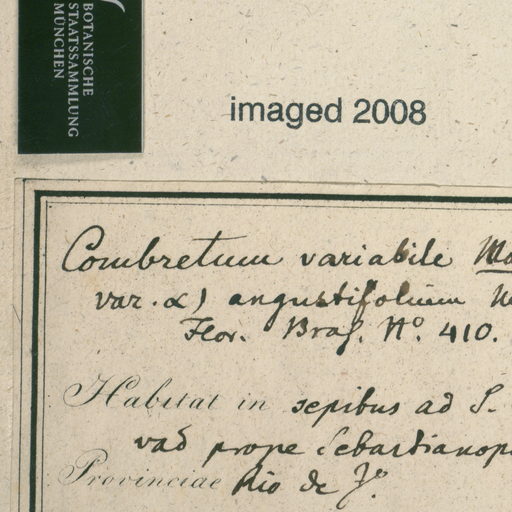 BOTANISCHE
STAATSSAMMLUNG
MÜNCHEN
imaged 2008
Combretum variabile
var. α) angustifolium
Flor. Bras. No. 410.
Habitat in sepibus ad S.
prope Sebastianop
Provinciae Rio de Jo.